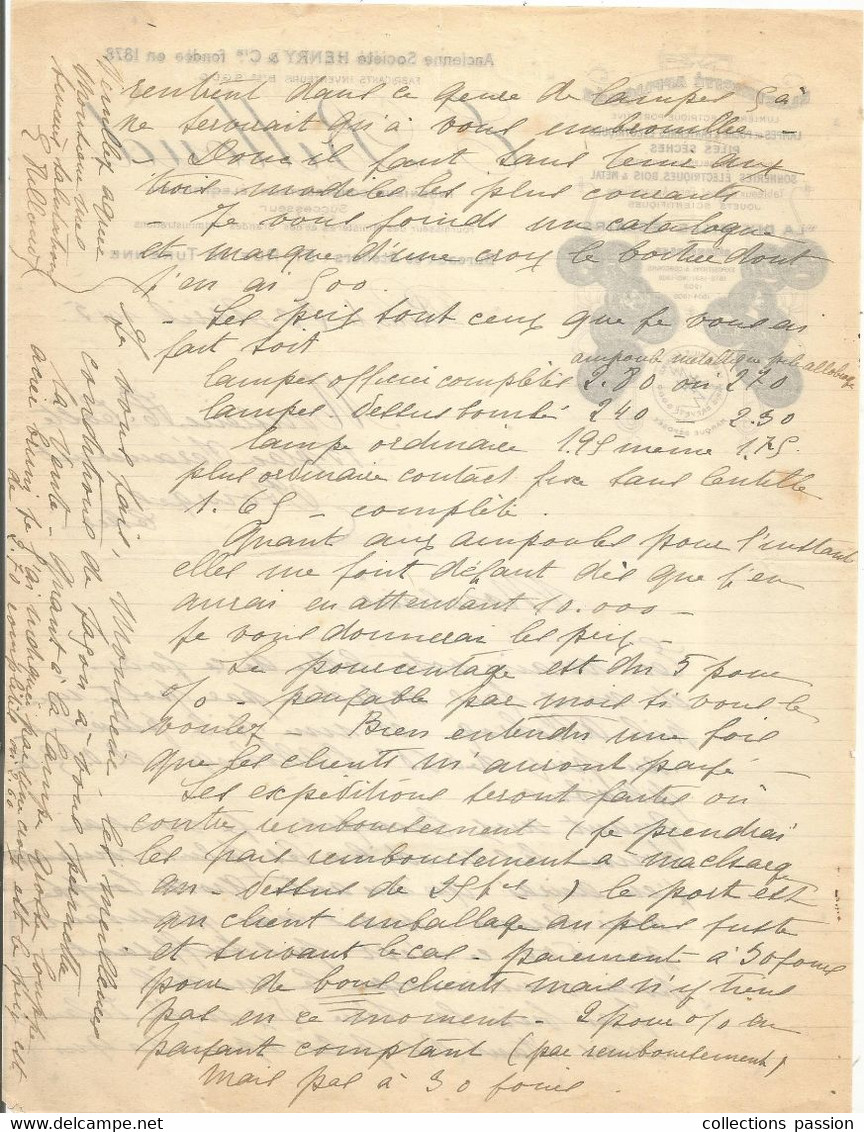 rentrent dans ce genre de lampes çà
ne servirait qu'à vous embrouiller -
- Donc il faut sans tenir aux
trois modèles les plus courants
- Je vous joinds un catalogue
et marque d'une croix le boitier dont
j'en ai 500.
- Les prix sont ceux que je vous ai
fait soit
ampoule métallique
lampes officier complètes 2.80 ou 2.70
lampes - dessus bombé 2.40 - 2.30
lampe ordinaire 1.95 même 1.75.
plus ordinaire contact fixe sans lentille
1.65 - complète.
Quant aux ampoules pour l'instant
elles me font défaut dès que j'en
aurai en attendant 10.000 -
je vous donnerai les prix -
Le pourcentage est du 5 pour
% - payable par mois si vous le
voulez - Bien entendu une fois
que les clients m'auront payé -
Les expéditions seront faites ou
contre remboursement (je prendrai
les frais remboursement à ma charge
au-dessus de 25 frs) le port est
au client emballage au plus juste
et suivant le cas - paiement à 30 jours
pour de bons clients mais n'y tiens
pas en ce moment - 2 pour % en
payant comptant (par remboursement)
Mais pas à 30 jours.
Je vous fais, Monsieur - les meilleures
conditions de façon à vous permettre
la vente - Quant à la lampe
acier bruni je l'ai indiquée par une croix et le prix est
de 2.70 complètes ou 2.60
Veuillez agréer
Monsieur mes
sincères salutations
Ancienne Société HENRY & Cie fondée en 1878
FABRICANTS INVENTEURS Btés S.G.D.G.
PILES SÈCHES
SONNERIES ÉLECTRIQUES BOIS & MÉTAL
JOUETS SCIENTIFIQUES
Successeur
collections passion